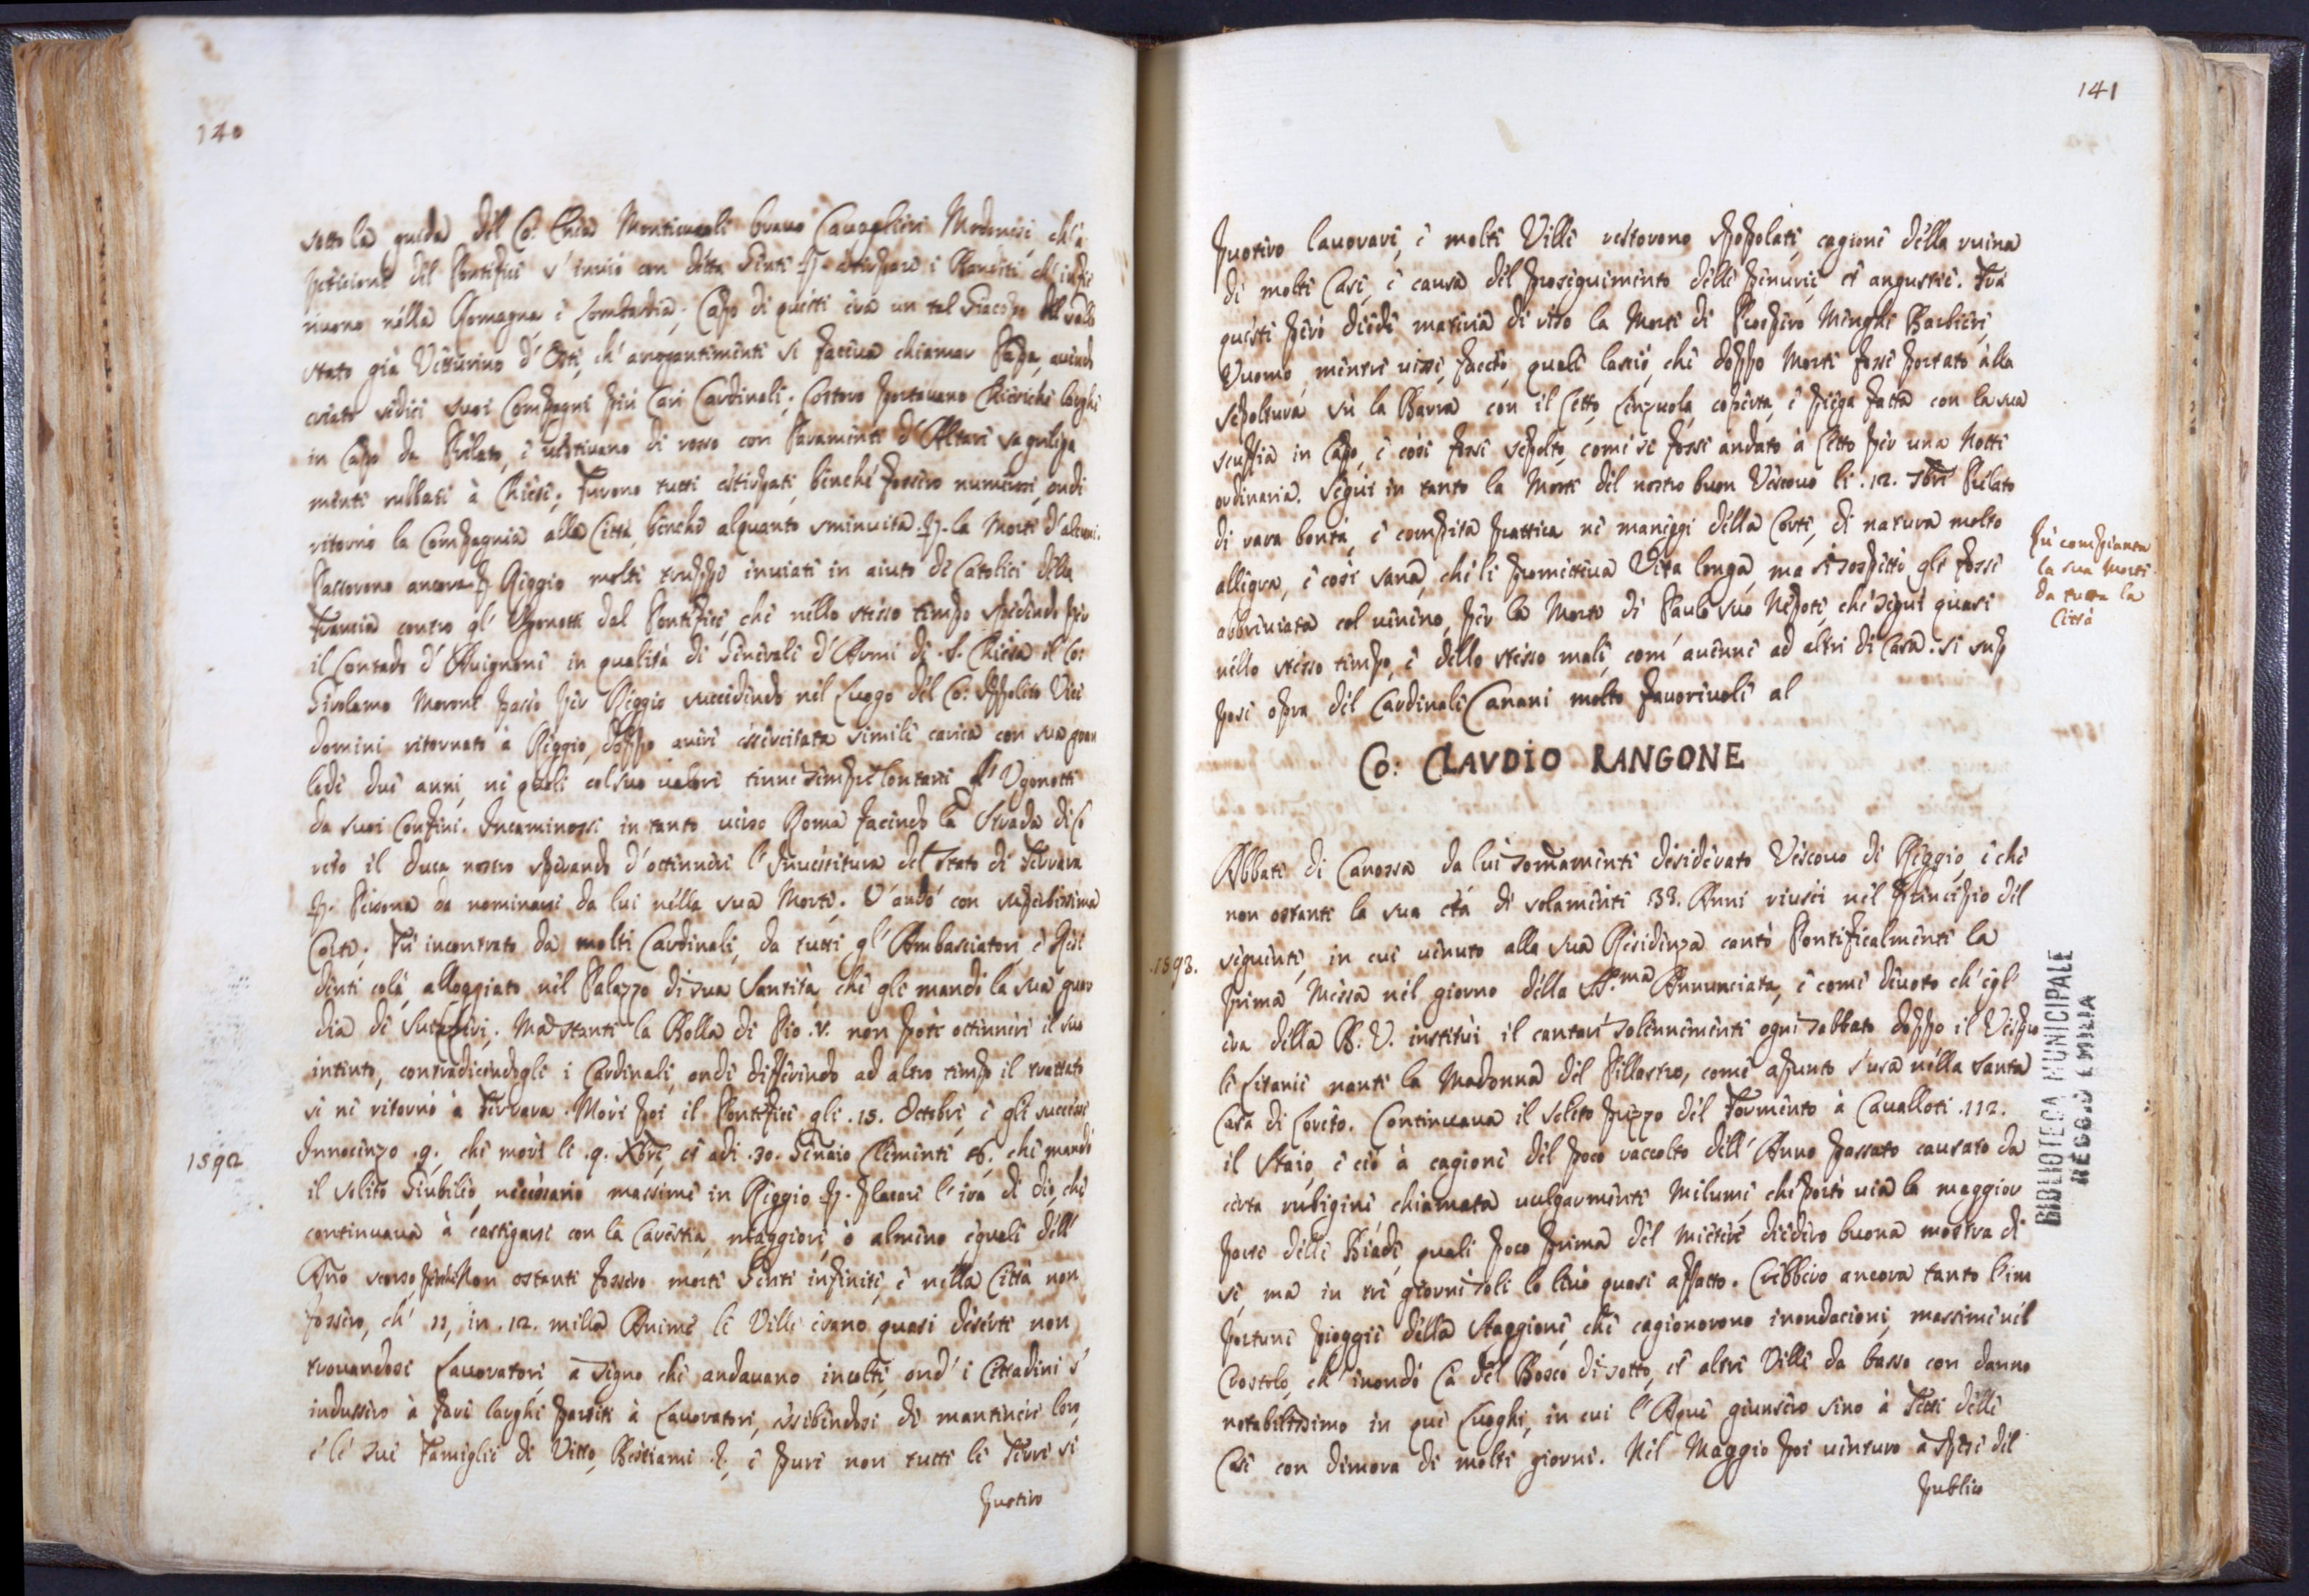 140
sotto la guida del Co: Enea Montecuccoli bravo Cavagliere Modenese, ch'à
peticione del Pontefice s'inviò con detta Gente p. estirpare i Banditi, ch'infie
rivono nella Romagna, e Lombardia. Capo di questi era un tal Giacopo dal Gallo
stato già Vetturino d'Osti, ch'arrogantemente si faceva chiamar Papa, avendo
creato sedici suoi Compagni più Cari Cardinali; Costoro portavano Chieriche larghe
in Capo da Prelato, e vestivano di rosso con Paramenti d'Altari sagrilega
mente rubbati à Chiese; Furono tutti estirpati, benche fossero numerosi, onde
ritornò la Compagnia alla Città, benche alquanto sminuita p. la Morte d'alcuni.
Passorono ancora p Reggio molte truppe inviate in aiuto de Catolici della
Francia contro gl'Ugonotti dal Pontefice, che nello stesso tempo spedendo per
il Contado d'Avignone in qualità di Generale d'Armi di S. Chiesa il Co:
Girolamo Morone passò per Reggio succedendo nel Luogo del Co: Ippolito Vice
domini ritornato à Reggio, doppo avere essercitata simile carica con sua gran
lode due anni, ne quali col suo valore tenne sempre lontani gl'Ugonotti
da suoi Confini. Incaminossi in tanto verso Roma facendo la Strada di Lo
reto il Duca nostro sperando d'ottenere l'Investitura del Stato di Ferrara
p. Persona da nominarsi da lui nella sua Morte. V'andò con superbissima
Corte; Fù incontrato da molti Cardinali, da tutti gl'Ambasciatori, e Resi
denti colà, alloggiato nel Palazzo di Sua Santità, che gli mandò la sua guar
dia di Suizzeri. Mà stante la Bolla di Pio .V. non potè ottenere il suo
intento, contradicendogli i Cardinali, onde differendo ad altro tempo il trattato
se ne ritornò à Ferrara. Morì poi il Pontefice gli .15. Ottobre, e gli successe
1592 Innocenzo .9. che morì li .9. Xbre, et adi .30. Genaio Clemente .8. che mandò
il solito Giubileo, necessario massime in Reggio p. placare l'ira di Dio, che
continuava à castigarsi con la Carestia, maggiore, ò almeno eguale dell'
Año scorso, perche Non ostante fossero morte Genti infinite, e nella Città non
fossero, ch'11, in .12. milla Anime le Ville erano quasi deserte non
trovandosi Lavoratori, a segno che andavano incolte, ond'i Cittadini s'
indussero à fare larghi partiti à Lavoratori, essibendosi di mantenere loro,
e le sue Famiglie di Vitto, Bestiami &, e pure non tutte le Terre si
puotero
141
puotero lavorare, e molte Ville restorono spopolate, cagione della ruina
di molte Case, e causa del proseguimento delle penurie et angustie. Frà
questi però diede materia di riso la Morte di Prospero Menghi Barbiere,
Vuomo, mentre visse, faceto, quale lasciò, che doppo Morte fosse portato alla
sepoltura sù la Barra con il Letto, Linzuola, coperta, e piega fatta con la sua
scuffia in Capo, e così fosse sepolto, come se fosse andato à Letto per una Notte
ordinaria. Seguì in tanto la Morte del nostro buon Vescovo li .12. 7bre Prelato
di rara bontà, e compita prattica ne maneggi della Corte, di natura molto
allegra, e così sana, che li prometteva Vita longa, ma si sospettò gli fosse
abbreviata col veneno, per la Morte di Paulo suo Nepote, che seguì quasi
nello stesso tempo, e dello stesso male, com'avenne ad altri di Casa. Si sup
pose opra del Cardinale Canani molto favorevole al
Fù compianta
la sua Morte
da tutta la
Città
Co: CLAVDIO RANGONE
Abbate di Canossa da lui somamente desiderato Vescovo di Reggio, e che
non ostante la sua età di solamente 33. Anni riuscì nel Principio del
1593. seguente, in cui venuto alla sua Residenza cantò Pontificalmente la
prima Messa nel giorno della SS.ma Annunciata, e come devoto ch'egl'
era della B. V. instituì il cantare solennemente ogni Sabbato doppo il Vespro
le Litanie nanti la Madonna del Pillastro, come apunto s'usa nella Santa
Casa di Loreto. Continuava il solito prezzo del Formento à Cavalloti .112.
il Staio, e ciò à cagione del poco raccolto dell'Anno passato causato da
certa rubigine chiamata vulgarmente Milume, che portò via la maggior
parte delle Biade, quali poco prima del mietere diedero buona mostra di
se, ma in tre giorni soli lo levò quasi affatto. Crebbero ancora tanto l'im
portune pioggie della Staggione, che cagionorono inondacioni, massime nel
Crostolo, ch'inondò Cà del Bosco di sotto, et altre Ville da basso con danno
notabilissimo in que Luoghi, in cui l'Aque giunsero sino à Tetti delle
Case con dimora di molti giorni. Nel Maggio poi venturo à spese del
publico
BIBLIOTECA MUNICIPALE
REGGIO EMILIA